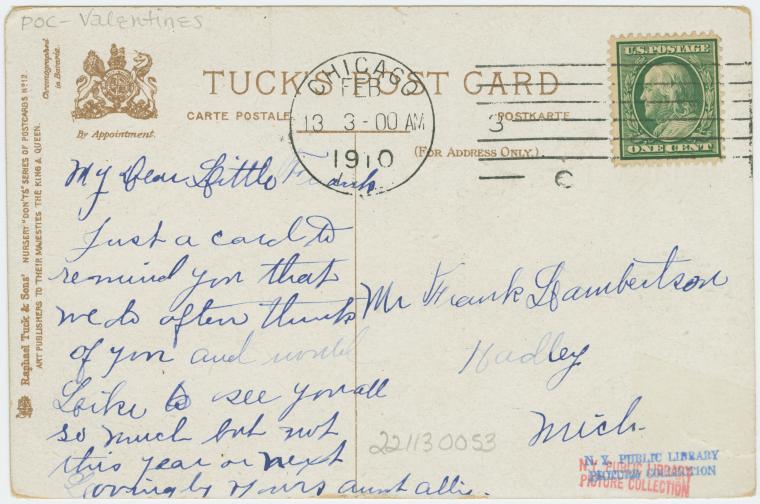 POC - Valentines
Chromographed
in Bavaria.
By Appointment.
TUCK'S POST CARD
CARTE POSTALE
POSTKARTE
(FOR ADDRESS ONLY.)
CHICAGO
FEB
13 3-00 AM
1910
3
C
U.S. POSTAGE
ONE CENT
Raphael Tuck & Sons' NURSERY "DON'TS" SERIES OF POSTCARDS Nº 12.
ART PUBLISHERS TO THEIR MAJESTIES THE KING & QUEEN.
My Dear Little Frank
Just a card to
remind you that
we do often think
of you and would
Like to see you all
so much but not
this year or next
Lovingly yours aunt Allie.
Mr Frank Lambertson
Hadley
Mich.
221130053
N.Y. PUBLIC LIBRARY
PICTURE COLLECTION
N.Y. PUBLIC LIBRARY
PICTURE COLLECTION